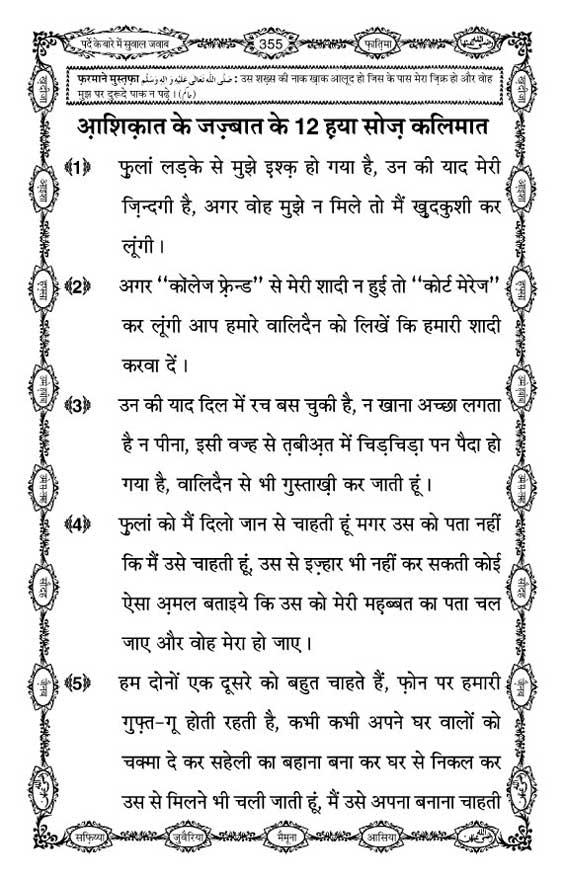 पर्दे के बारे में सुवाल जवाब
355
फ़ातिमा
फ़रमाने मुस्तफ़ा صَلَّى اللهُ تَعَالٰى عَلَيْهِ وَاٰلِهٖ وَسَلَّم : उस शख़्स की नाक ख़ाक आलूद हो जिस के पास मेरा ज़िक्र हो और वोह
मुझ पर दुरूदे पाक न पढ़े । (حاكم)
आ़शिक़ात के जज़्बात के 12 ह़या सोज़ कलिमात
《1》 फुलां लड़के से मुझे इश्क़ हो गया है, उन की याद मेरी
ज़िन्दगी है, अगर वोह मुझे न मिले तो मैं खुदकुशी कर
लूंगी ।
《2》 अगर ‘‘कॉलेज फ़्रेन्ड’’ से मेरी शादी न हुई तो ‘‘कोर्ट मेरेज’’
कर लूंगी आप हमारे वालिदैन को लिखें कि हमारी शादी
करवा दें ।
《3》 उन की याद दिल में रच बस चुकी है, न खाना अच्छा लगता
है न पीना, इसी वज्ह से त़बीअ़त में चिड़चिड़ा पन पैदा हो
गया है, वालिदैन से भी गुस्ताख़ी कर जाती हूं ।
《4》 फुलां को मैं दिलो जान से चाहती हूं मगर उस को पता नहीं
कि मैं उसे चाहती हूं, उस से इज़्हार भी नहीं कर सकती कोई
ऐसा अ़मल बताइये कि उस को मेरी मह़ब्बत का पता चल
जाए और वोह मेरा हो जाए ।
《5》 हम दोनों एक दूसरे को बहुत चाहते हैं, फ़ोन पर हमारी
गुफ़्त-गू होती रहती है, कभी कभी अपने घर वालों को
चक्मा दे कर सहेली का बहाना बना कर घर से निकल कर
उस से मिलने भी चली जाती हूं, मैं उसे अपना बनाना चाहती
सफ़िय्या
जुवैरिया
मैमूना
आसिया